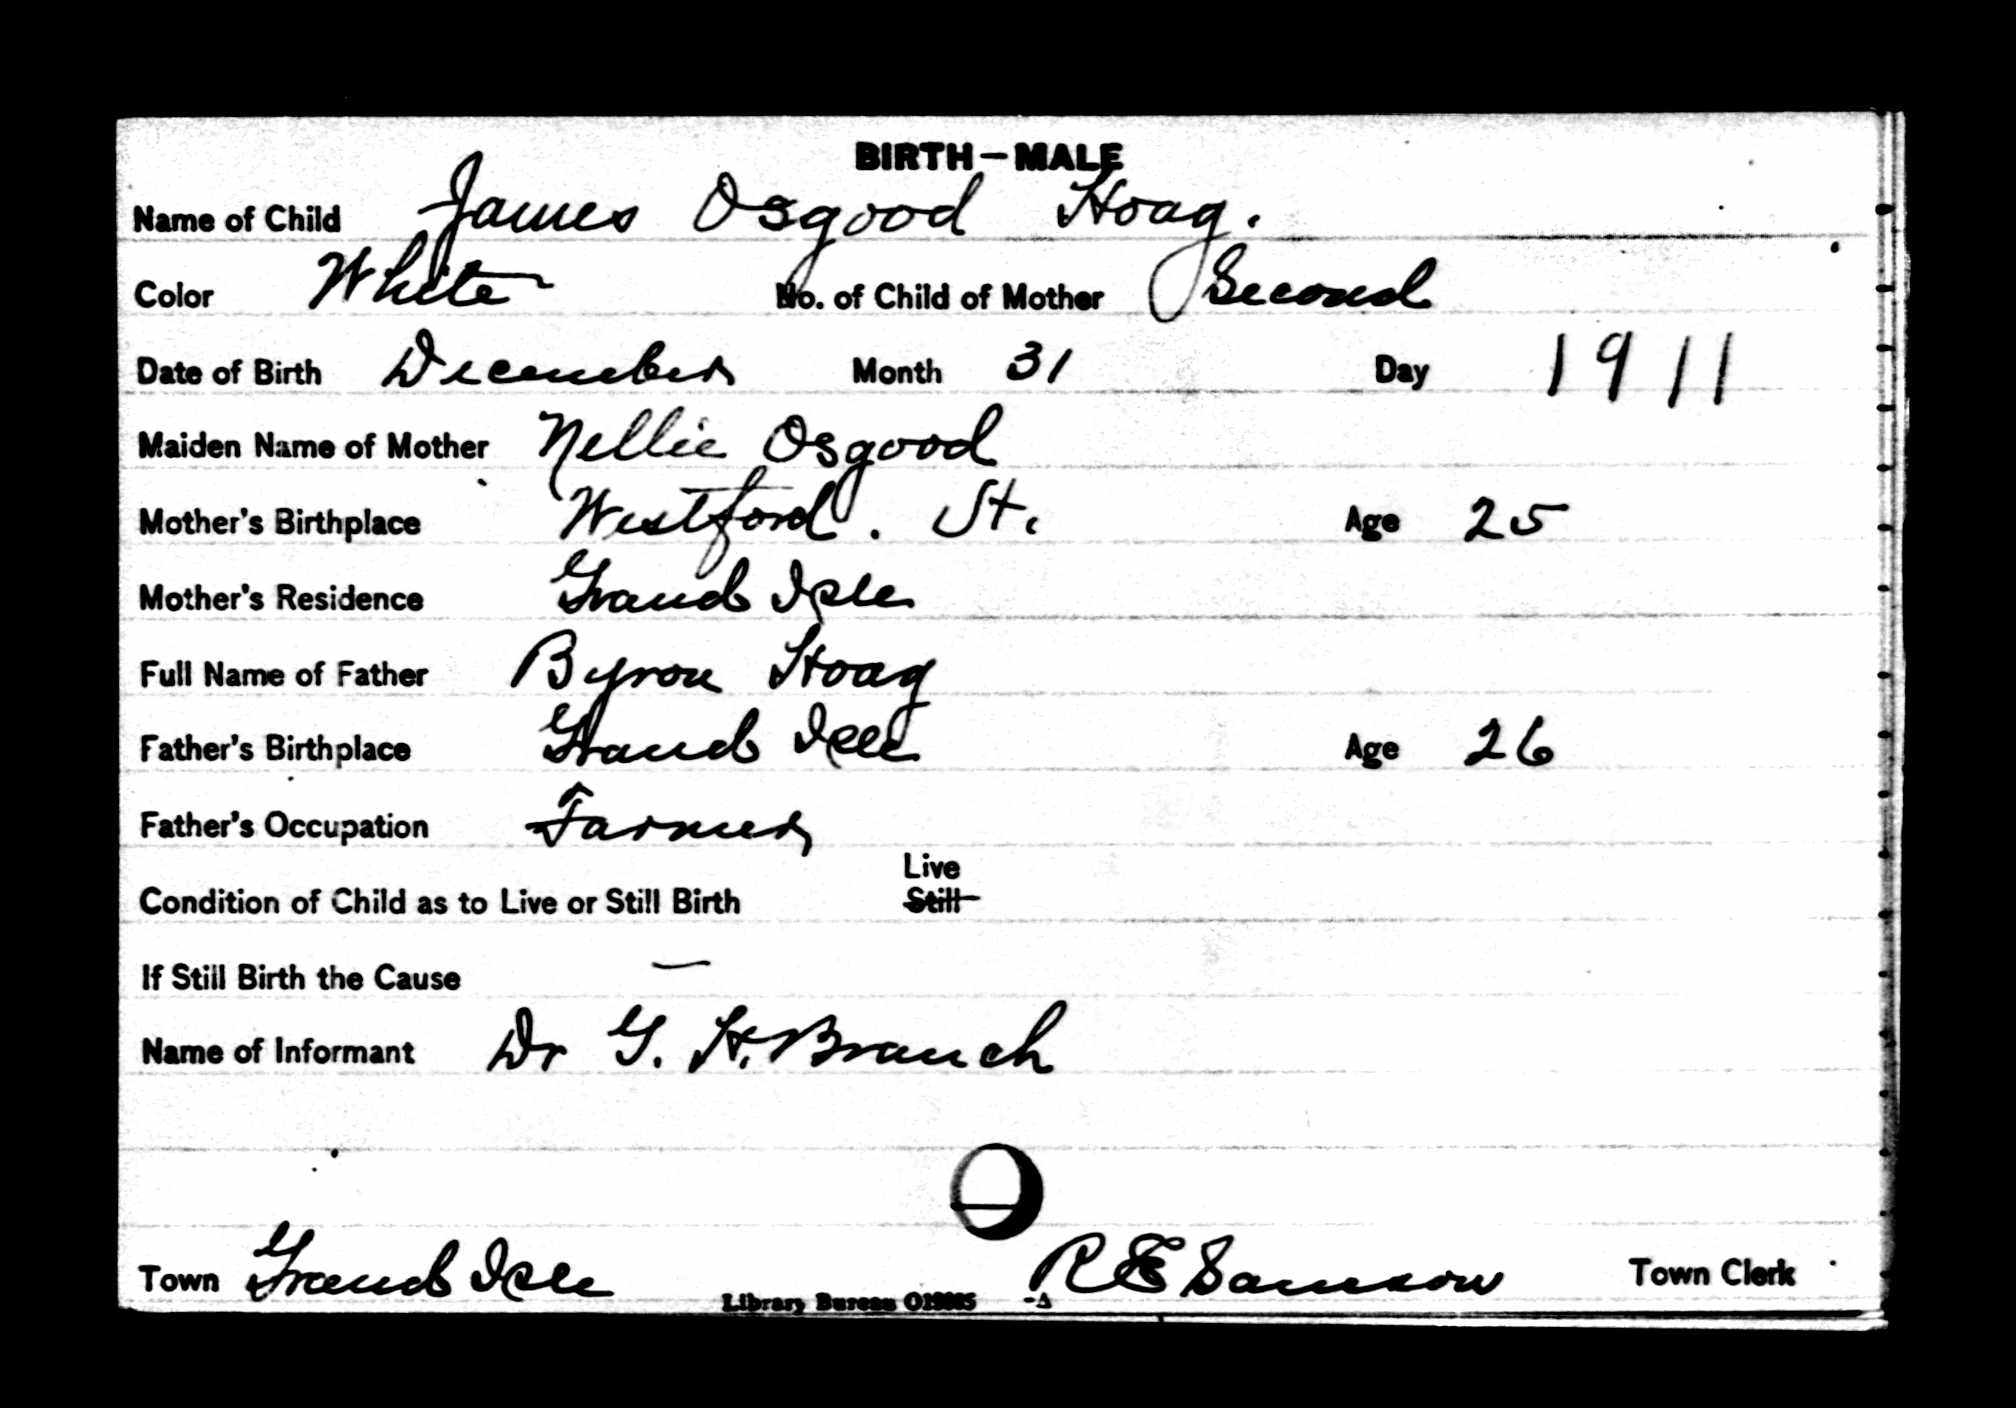 BIRTH—MALE
Name of Child James Osgood Hoag.
Color White No. of Child of Mother Second
Date of Birth December Month 31 Day 1911
Maiden Name of Mother Nellie Osgood
Mother's Birthplace Westford. Vt. Age 25
Mother's Residence Grand Isle
Full Name of Father Byron Hoag
Father's Birthplace Grand Isle Age 26
Father's Occupation Farmer
Live
Condition of Child as to Live or Still Birth Still
If Still Birth the Cause —
Name of Informant Dr G. H. Branch
Town Grand Isle R E Samson Town Clerk
Library Bureau